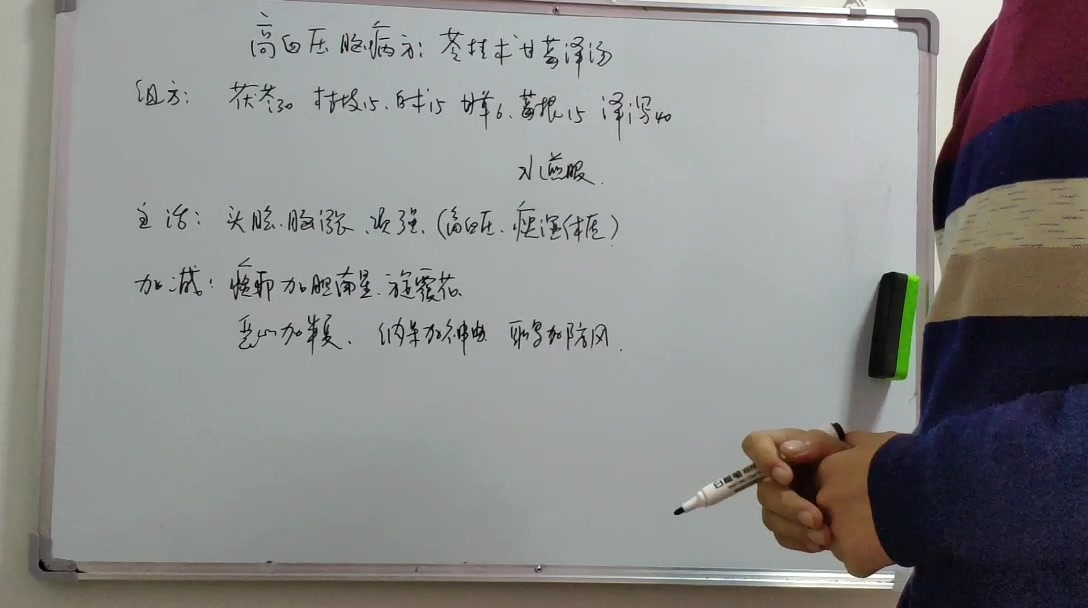 高血压脑病方：苓桂术甘葛泽汤
组方：茯苓30 桂枝15、白术15 甘草6、葛根15 泽泻40
水煎服.
主治：头眩、脑涨、项强、（高血压、痰湿体质）
加减：痰郁加胆南星、旋覆花
恶心加半夏、纳呆加神曲 耳鸣加防风.
白板笔